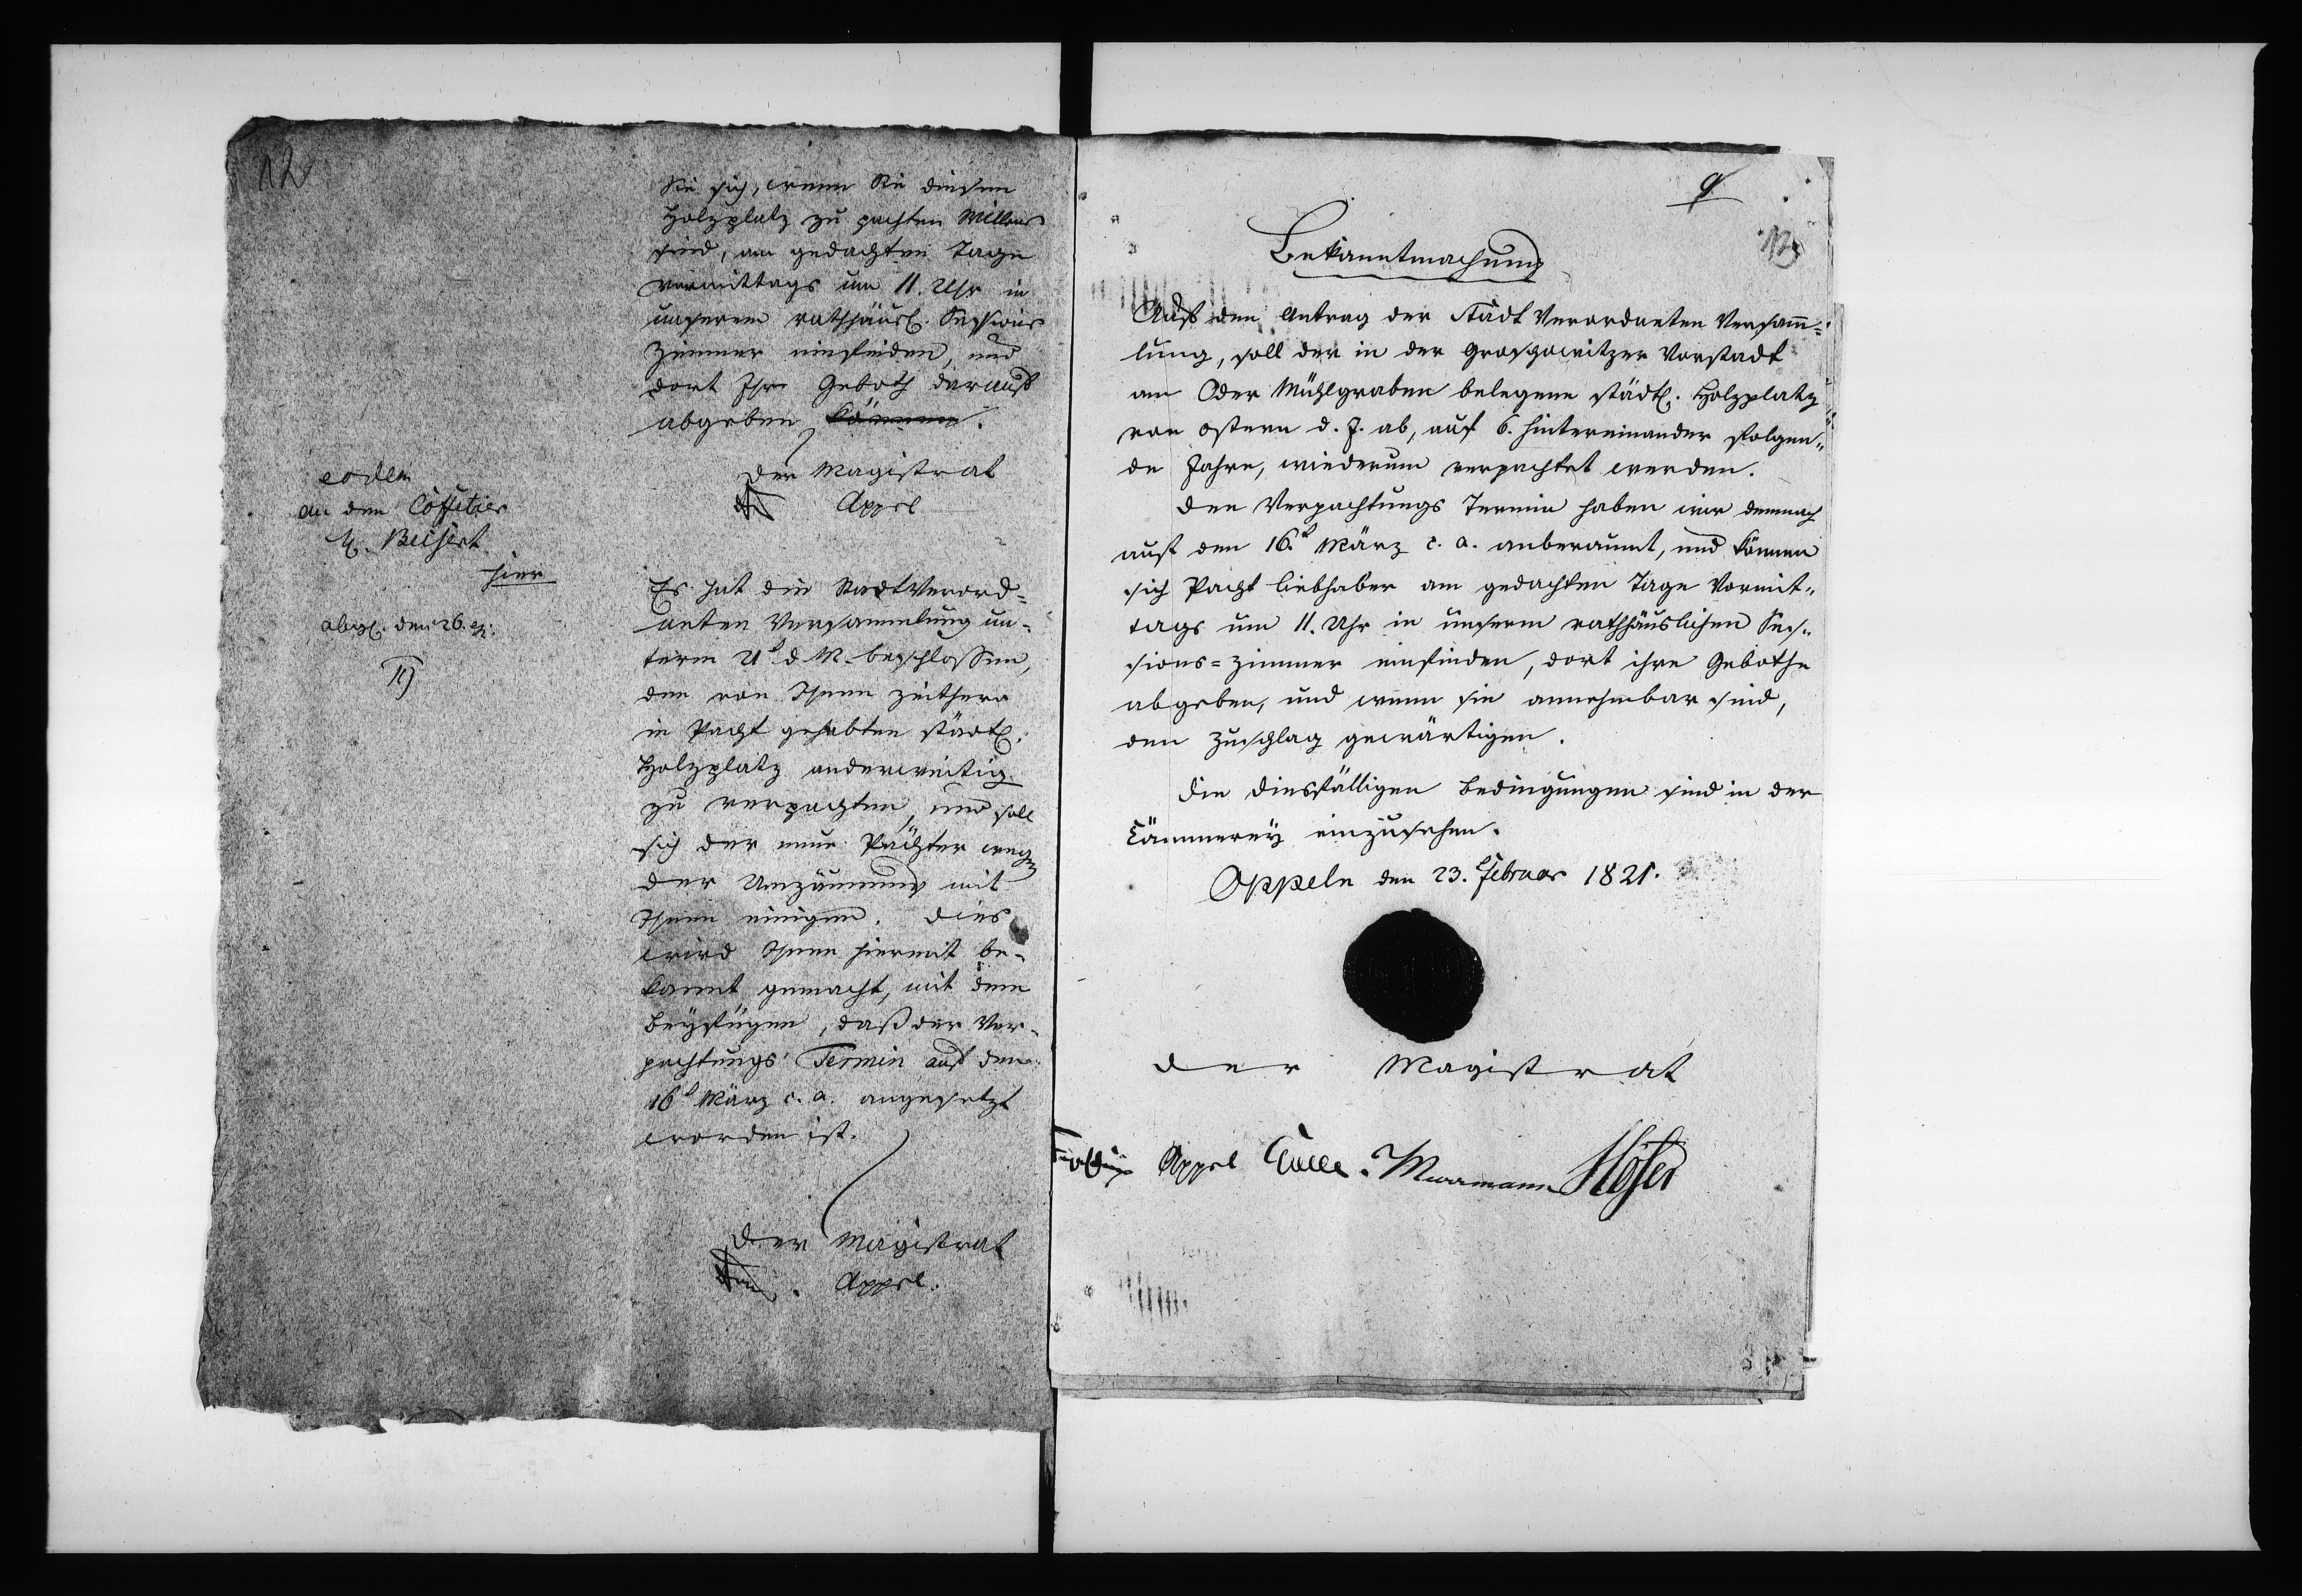 12
Sie sich, wenn Sie diesen
Holzplatz zu pachten Willens
sind, am gedachten Tage
vormittags um 11. Uhr in
unserem rathhäusl. Sessions
Zimmer einfinden, und
dort Ihr Geboth darauf
abgeben können.
Der Magistrat
Appel
eodem
an den Coffetier
H. Beisert
hier
abgs. den 26. ej.
Es hat die Stadt Verord=
neten Versammlung un-
term 21t d. M. beschlossen,
den von Ihnen zeithero
in Pacht gehabten städtl.
Holzplatz anderweitig
zu verpachten, und soll
sich der neue Pächter wegen
der Umzäunung mit
Ihnen einigen. Dies
wird Ihnen hiermit be-
kannt gemacht, mit dem
Beyfügen, daß der Ver-
pachtungs Termin auf den
16t März c. a. angesetzt
worden ist.
Der Magistrat
Appel.
9
13
Bekanntmachung
Auf den Antrag der Stadt Verordneten Versamm=
lung, soll der in der Groschowitzer Vorstadt
am Oder Mühlgraben belegene städtl. Holzplatz
von Ostern d. J. ab, auf 6. hintereinander folgen=
de Jahre, wiederum verpachtet werden.
Den Verpachtungs Termin haben wir demnach
auf den 16.t März c. a. anberaumt, und können
sich Pacht liebhaber am gedachten Tage Vormit=
tags um 11. Uhr in unserm rathhäuslichen Ses=
sions=zimmer einfinden, dort ihre Gebothe
abgeben, und wenn sie annehmbar sind,
den Zuschlag gewärtigen.
Die diesfälligen Bedingungen sind in der
Cämmerey einzusehen.
Oppeln den 23. Februar 1821.
Der Magistrat
Appel Galle. Murrmann Höfer